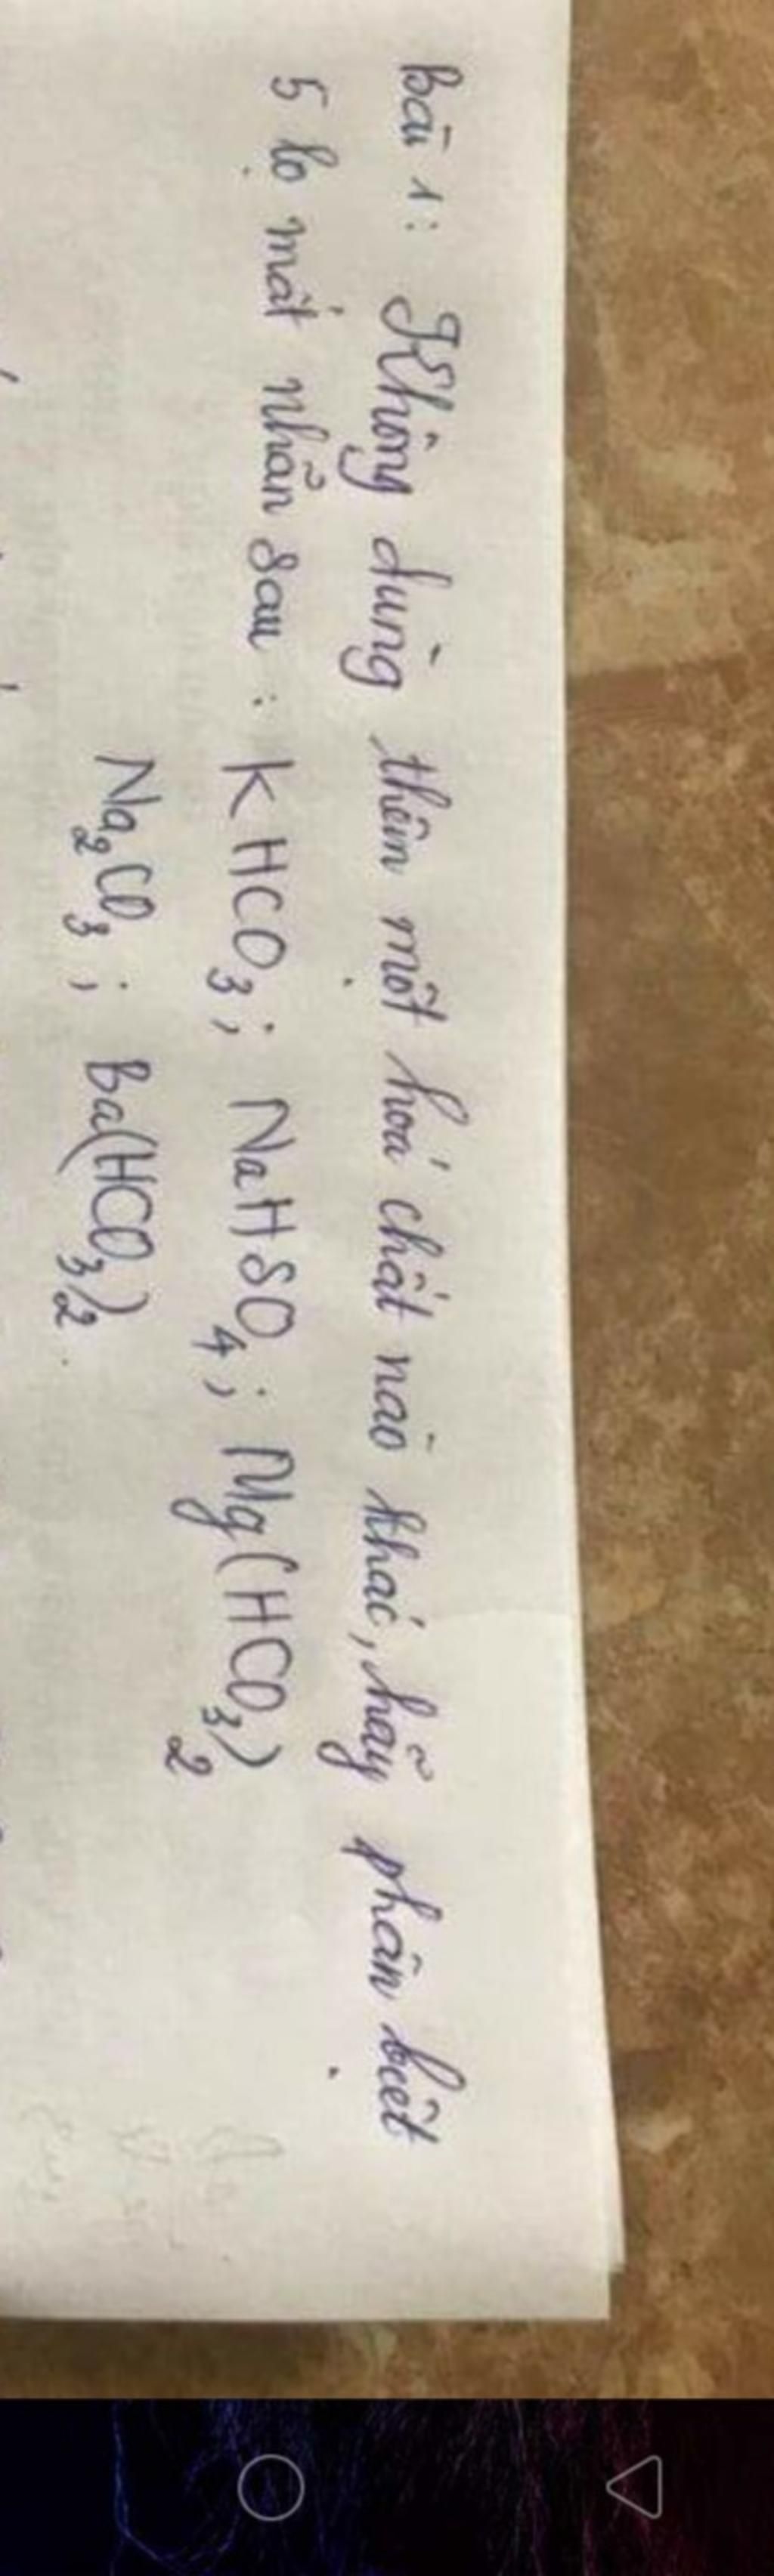 Bài 1: Không dùng thêm một hoá chất nào khác, hãy phân biệt
5 lọ mất nhãn sau: KHCO3; NaHSO4; Mg(HCO3)2
Na2CO3; Ba(HCO3)2.